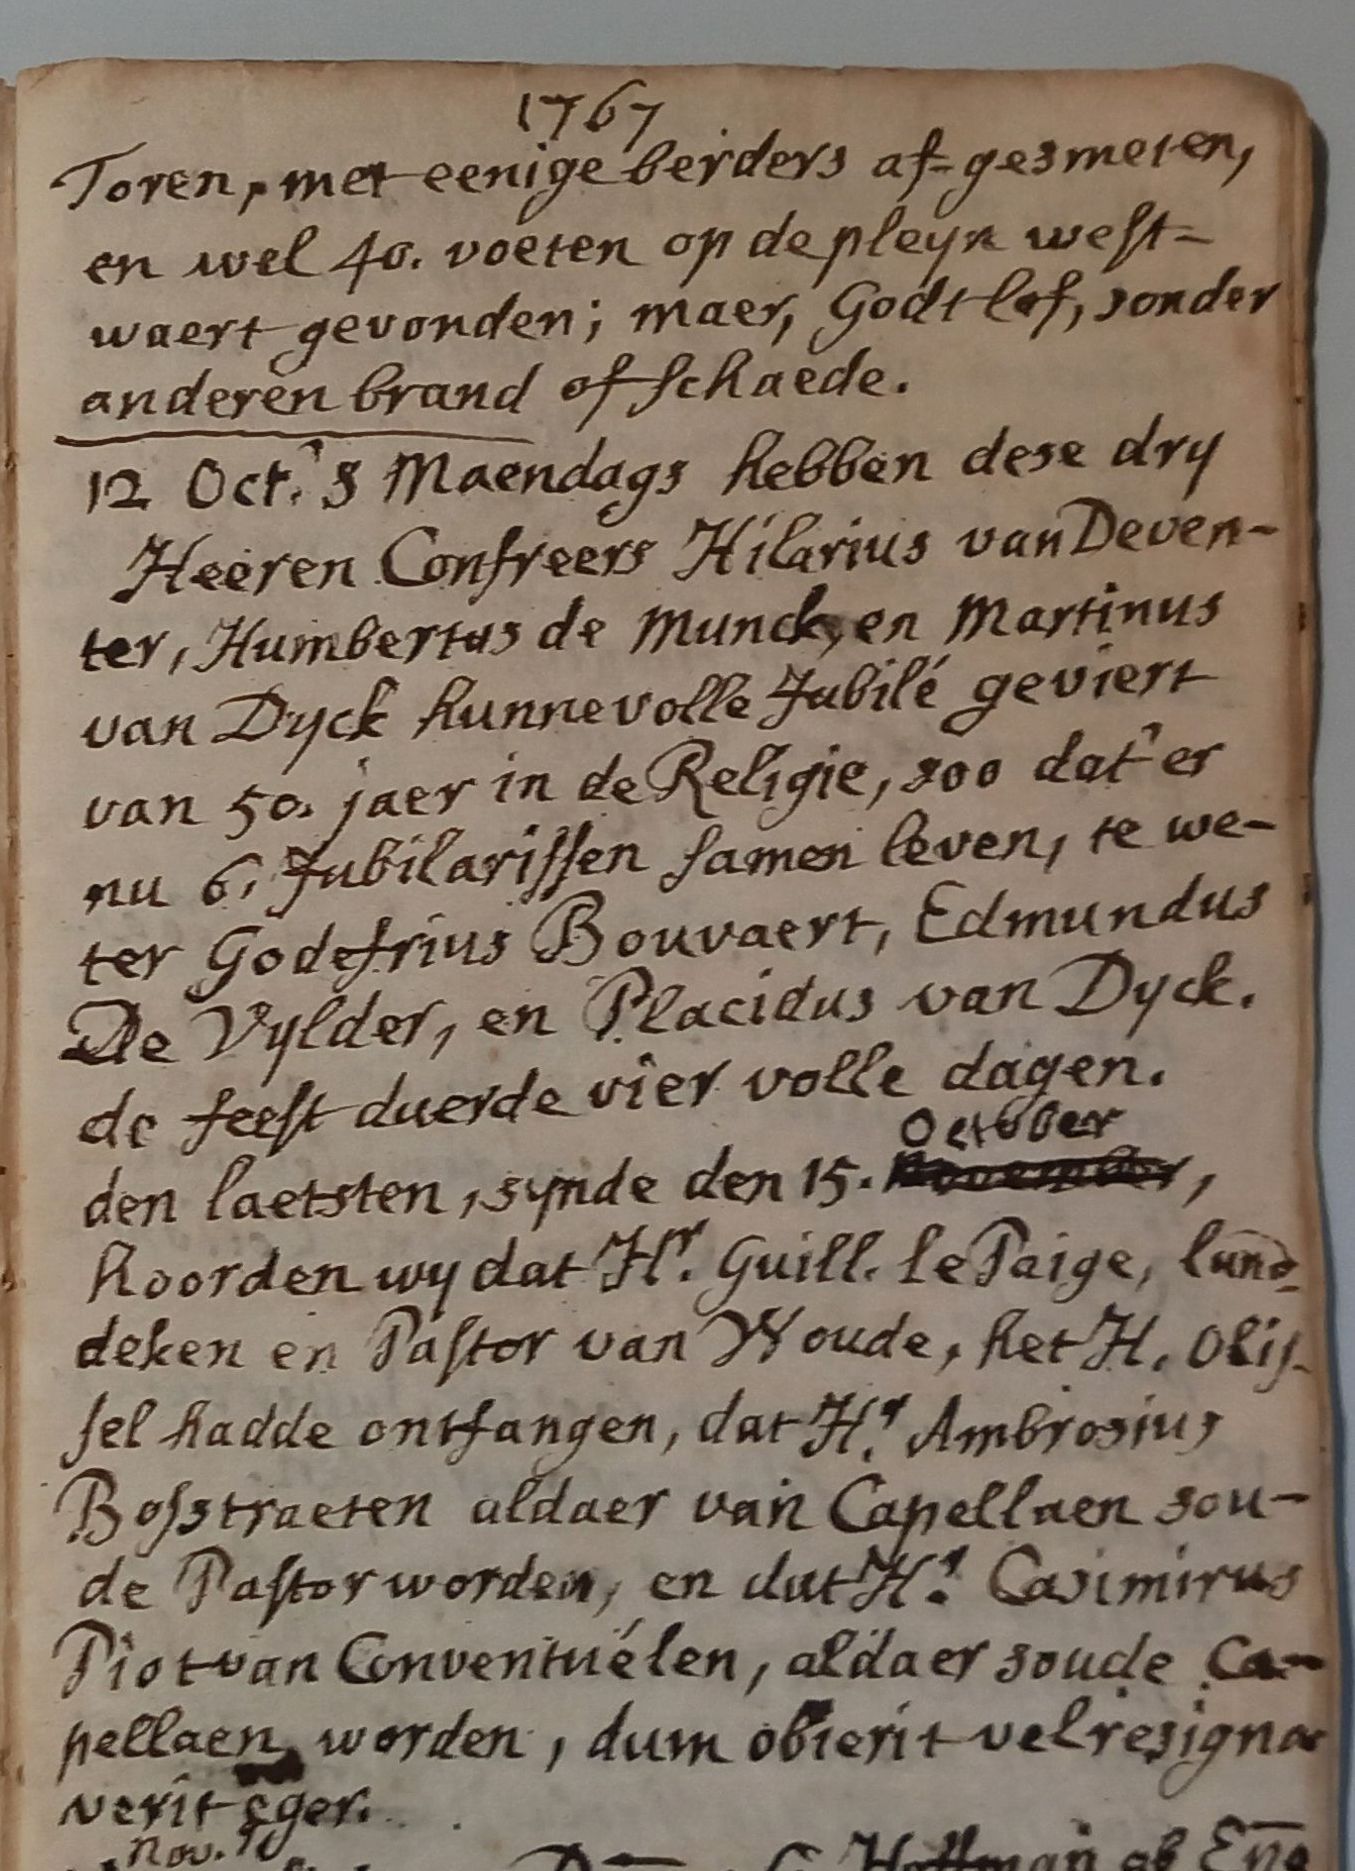 1767
Toren, met eenige berders af=gesmeten,
en wel 40. voeten op de pleyn west=
waert gevonden; maer, Godt lof, sonder
anderen brand of schaede.
12 Oct. 's Maendags hebben dese dry
Heeren Confreers Hilarius van Deven-
ter, Humbertus de Munck, en Martinus
van Dyck hunne volle Jubilé geviert
van 50. jaer in de Religie, soo dat'er
nu 6. Jubilarissen samen leven, te we-
ter Godefrius Bouvaert, Edmundus
De Vylder, en Placidus van Dyck.
de feest duerde vier volle dagen.
October
den laetsten, synde den 15. November,
hoorden wy dat Hr. Guill. le Paige, land-
deken en Pastor van Woude, het H. Olis-
sel hadde ontfangen, dat Hr. Ambrosius
Bosstraeten aldaer van Capellaen sou-
de Pastor worden, en dat Hr. Casimirus
Piot van Conventuélen, aldaer soude Ca-
pellaen worden, dum obierit vel resigna-
verit eger.
Nov.
Hoffman ab